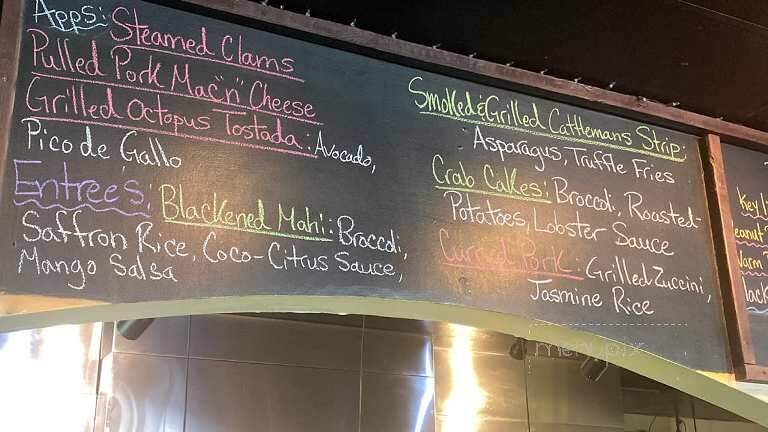 Apps: Steamed Clams
Pulled Pork Mac"n" Cheese
Grilled Octopus Tostada: Avocado,
Pico de Gallo
Entree's: Blackened Mahi: Broccoli,
Saffron Rice, Coco-Citrus Sauce,
Mango Salsa
Smoked & Grilled Cattlemans Strip:
Asparagus, Truffle Fries
Crab Cakes: Broccoli, Roasted
Potatoes, Lobster Sauce
Curried Pork: Grilled Zuccini,
Jasmine Rice
Key l
eanut
Warm
lack
menupix